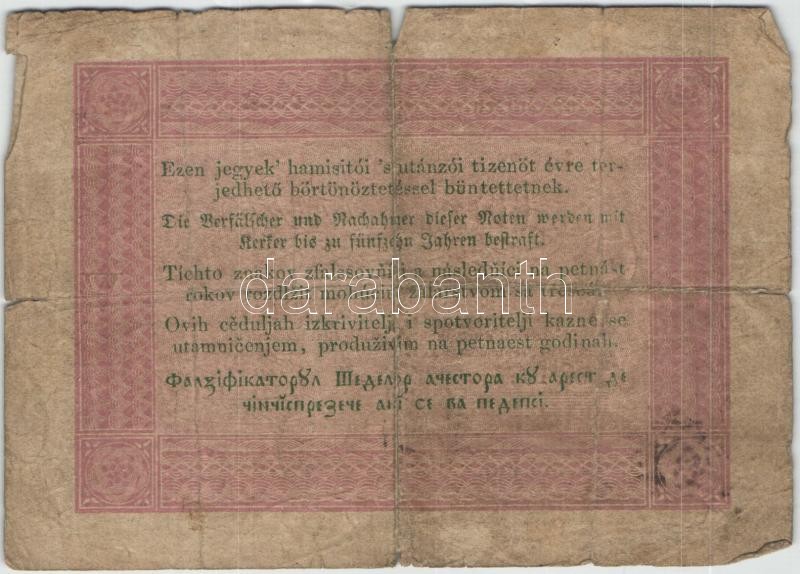 Ezen jegyek' hamisítói 's utánzói tizenöt évre ter-
jedhető börtönöztetéssel büntettetnek.
Die Verfälscher und Nachahmer dieser Noten werden mit
Kerker bis zu fünfzehn Jahren bestraft.
Tíchto znakov a následňíci na petnást
rokov
darabanth
Ovih cěduljah izkrivitelji i spotvoritelji kazne se
utamničenjem, produživim na petnaest godinah.
Фалзіфікаторꙋл Шеделор ачестора кꙋ арест де
чінчіспрезече ані се ва педепсі.